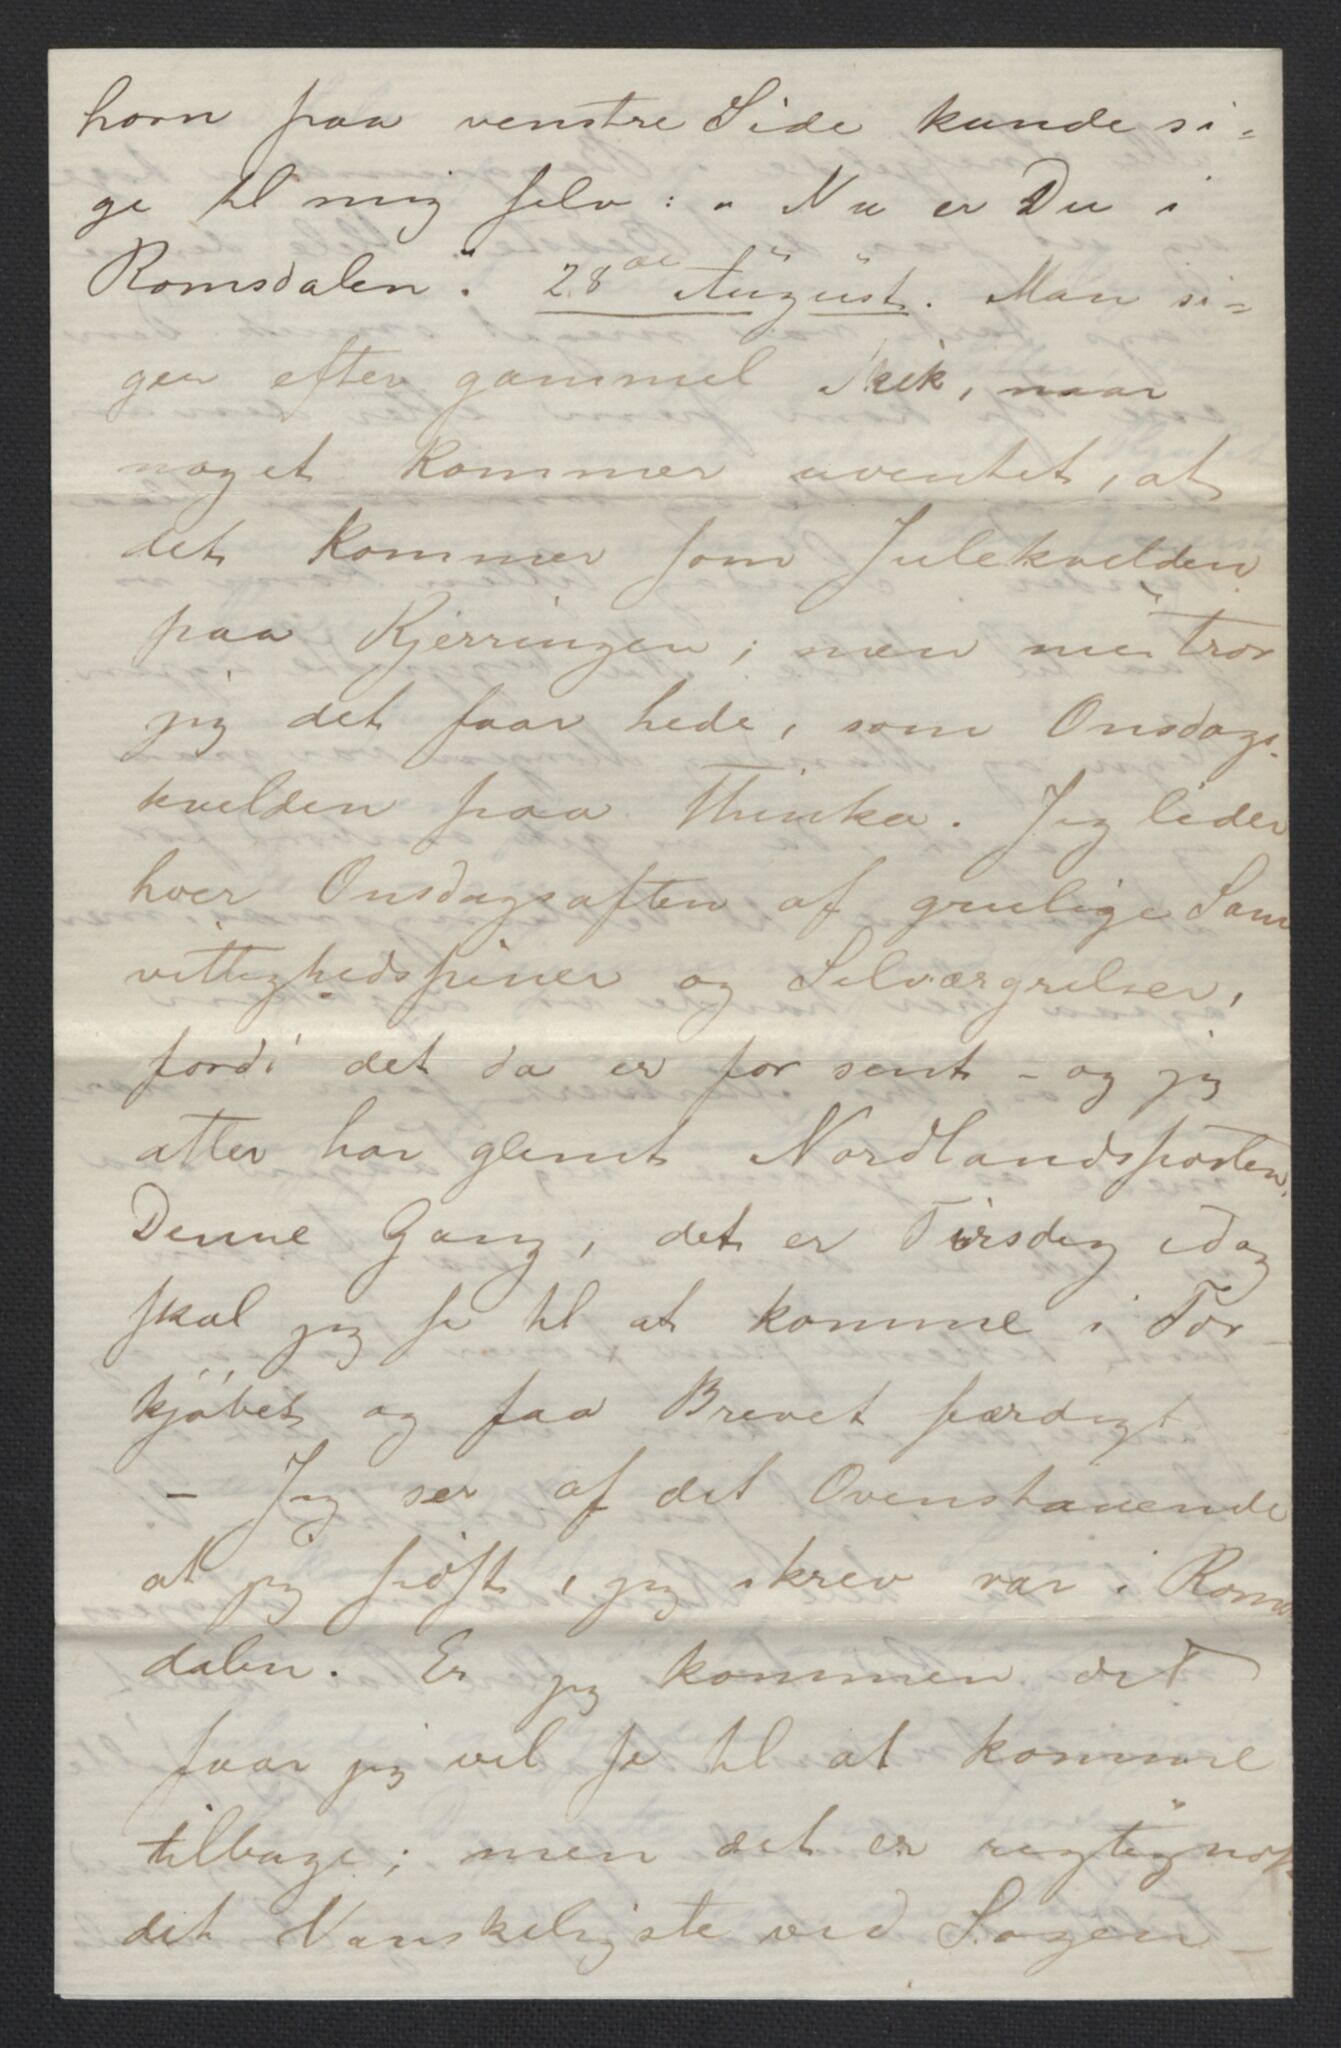 horn paa venstre Side kunde si-
ge til mig selv: „Nu er Du i
Romsdalen“. 28de August. Man si-
ger efter gammel Skik, naar
noget kommer uventet, at
det kommer som Julekvelden
paa Kjerringen; men nu tror
jeg det faar hede, som Onsdags-
kvelden paa Thinka. Jeg lider
hver Onsdagsaften af grulige Sam
vittighedspiner og Selværgrelser,
fordi det da er for sent – og jeg
atter har glemt Nordlandsposten.
Denne Gang, det er Tirsdag idag
skal jeg se til at komme i For-
kjøbet og faa Brevet færdigt
– Jeg ser af det Ovenstaaende
at jeg sidst, jeg skrev var i Roms
dalen. Er jeg kommen did
faar jeg vel se til at komme
tilbage; men det er rigtignok
det Vanskeligste ved Sagen –